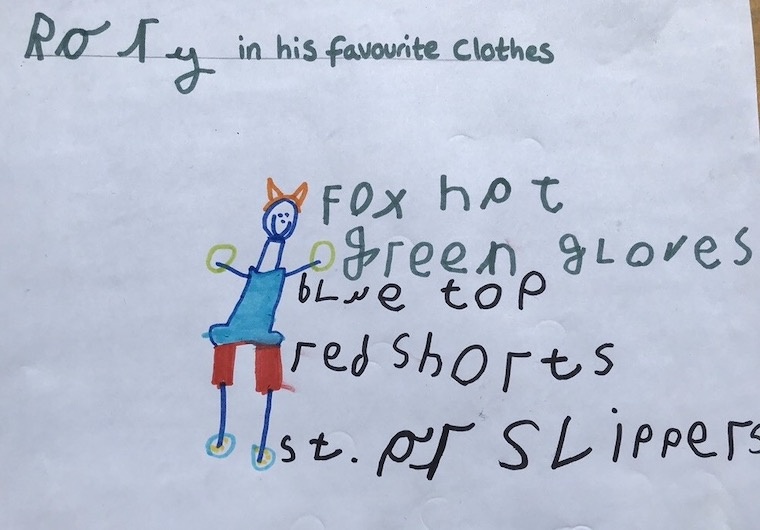 Rory in his favourite clothes
Fox hat
green gloves
blue top
red shorts
st.ar slippers